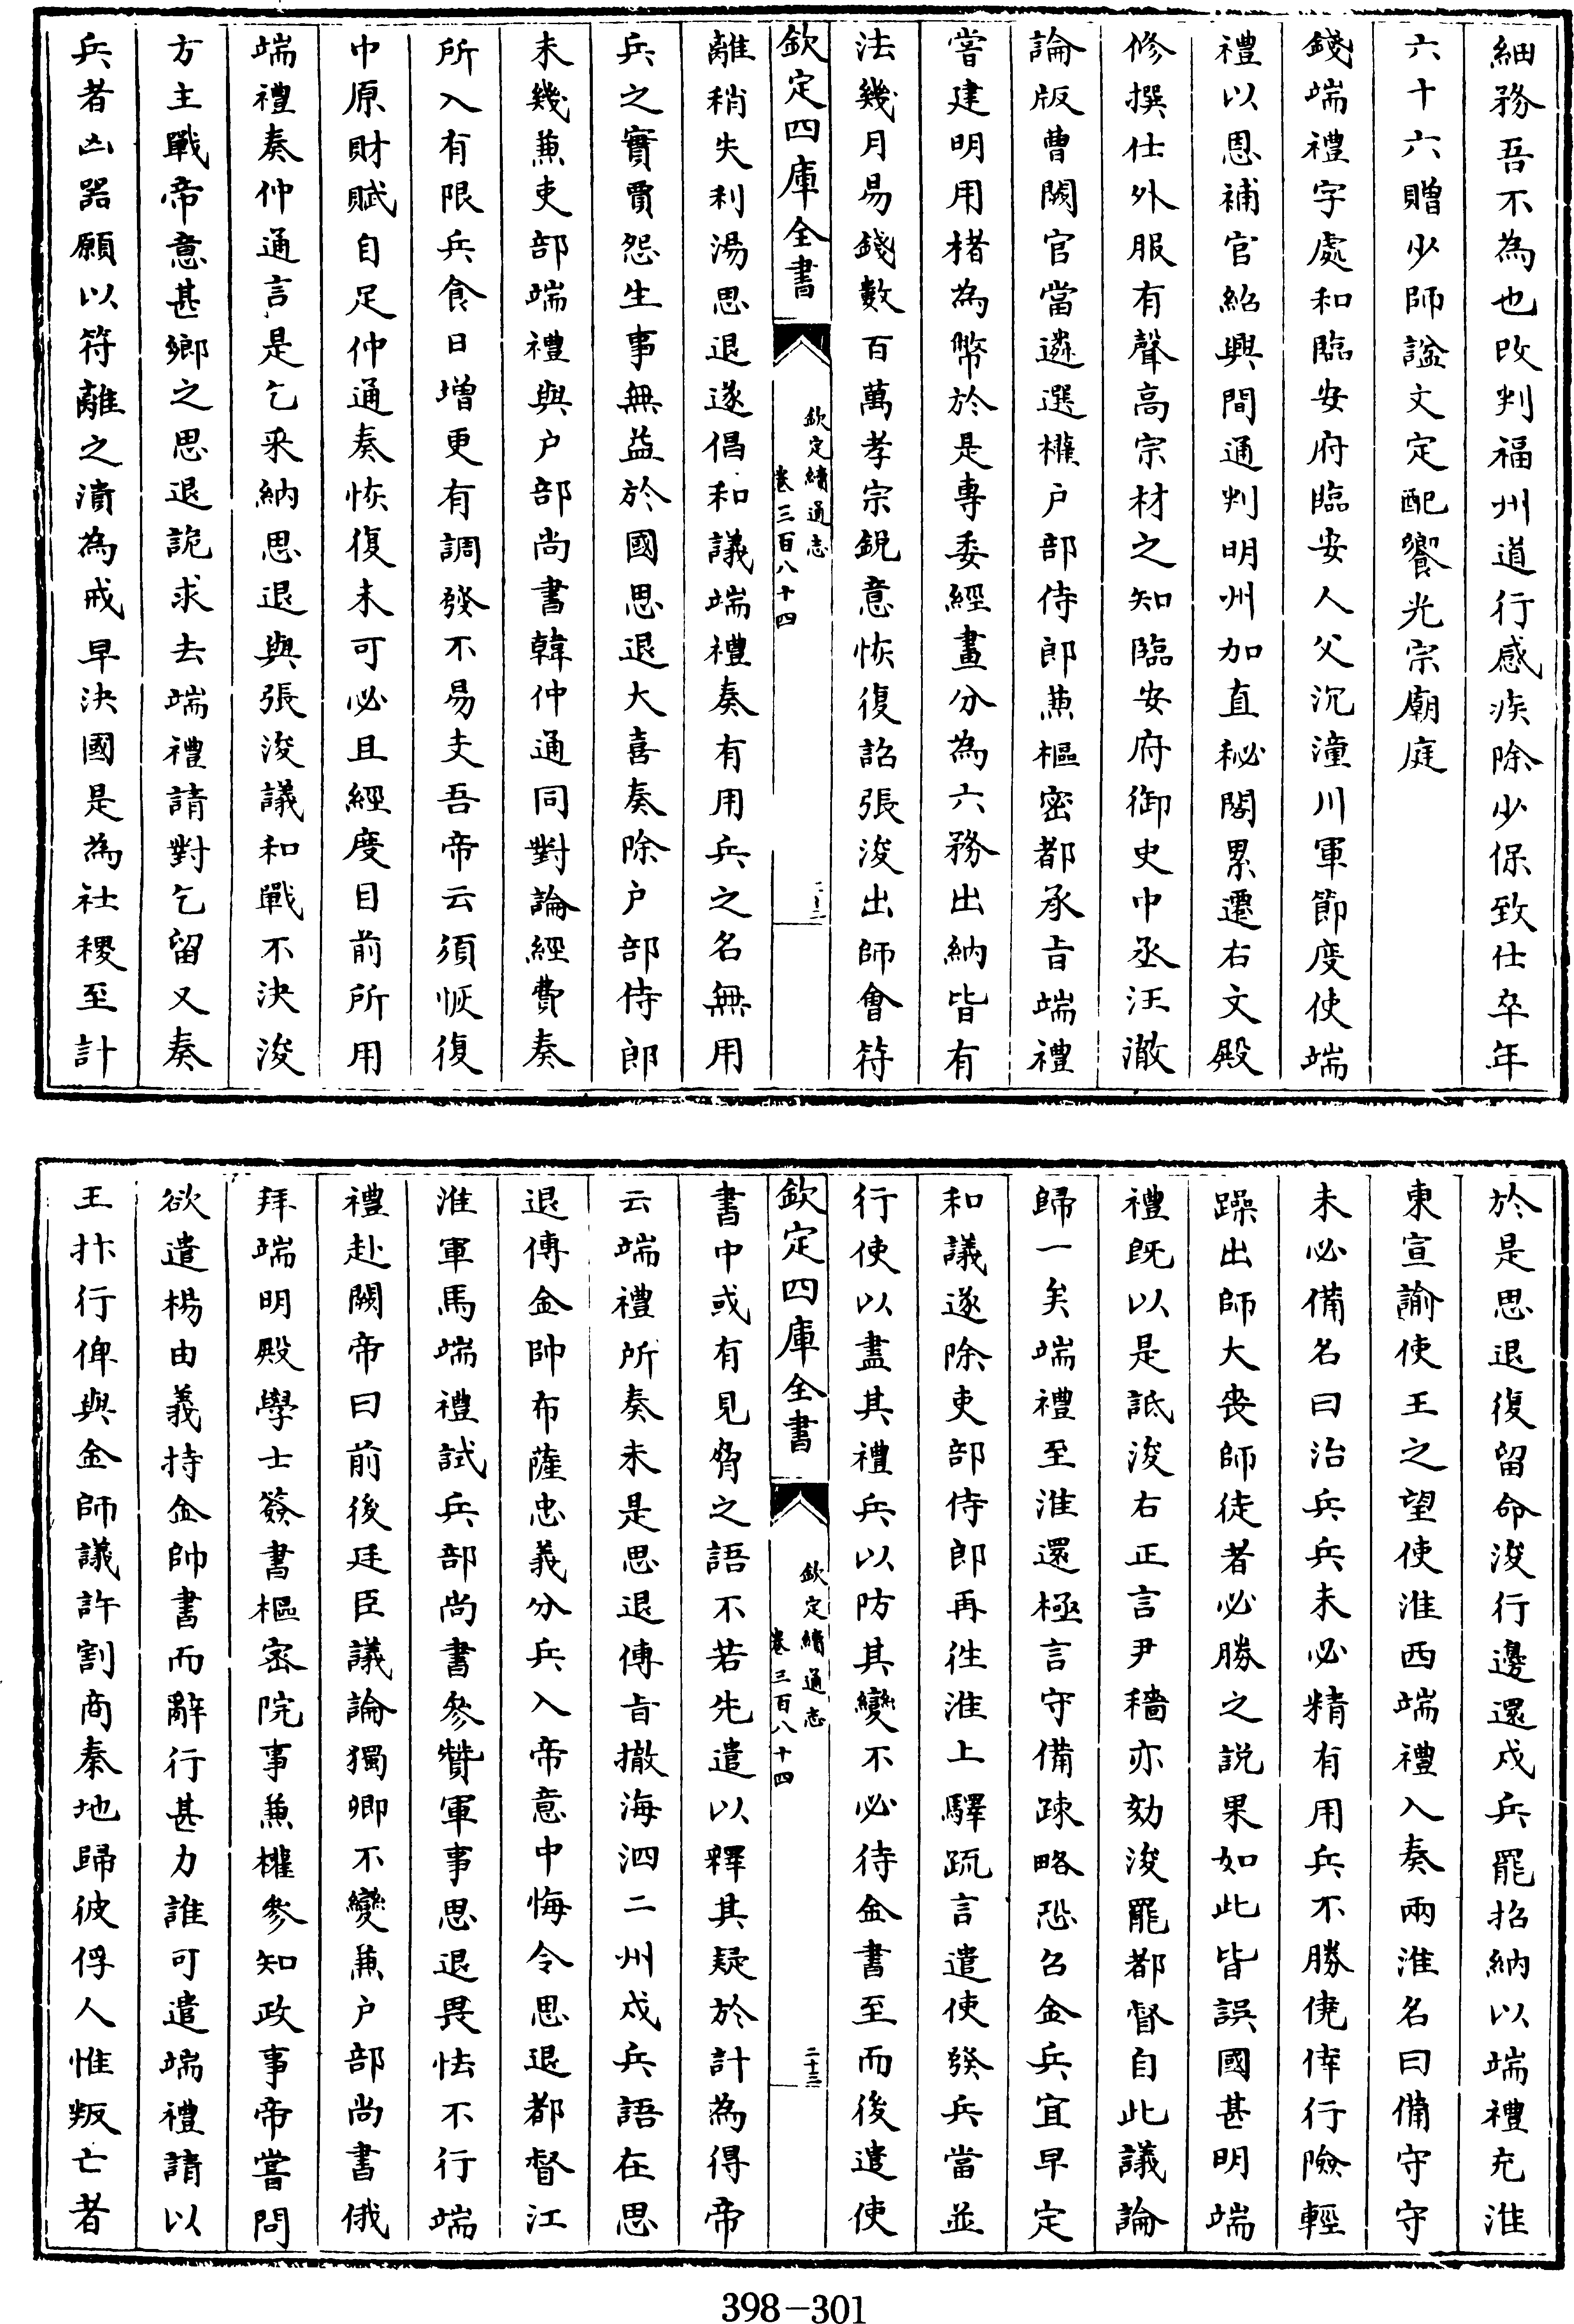 細務吾不為也改判福州道行感疾除少保致仕卒年
六十六贈少師諡文定配饗光宗廟庭
錢端禮字處和臨安府臨安人父沉潼川軍節度使端
禮以恩補官紹興間通判明州加直秘閣累遷右文殿
修撰仕外服有聲高宗材之知臨安府御史中丞汪澈
論版曹闕官當遴選權户部侍郎兼樞密都承㫖端禮
嘗建明用楮為幣於是專委經畫分為六務出納皆有
法幾月易錢數百萬孝宗銳意恢復詔張浚出師會符
欽定四庫全書
欽定續通志
卷三百八十四
二十三
離稍失利湯思退遂倡和議端禮奏有用兵之名無用
兵之實賈怨生事無益於國思退大喜奏除户部侍郎
未幾兼吏部端禮與户部尚書韓仲通同對論經費奏
所入有限兵食日增更有調發不易支吾帝云須恢復
中原財賦自足仲通奏恢復未可必且經度目前所用
端禮奏仲通言是乞采納思退與張浚議和戰不決浚
方主戰帝意甚鄉之思退詭求去端禮請對乞留又奏
兵者凶器願以符離之潰為戒早決國是為社稷至計
於是思退復留命浚行邊還戍兵罷招納以端禮充淮
東宣諭使王之望使淮西端禮入奏兩淮名曰備守守
未必備名曰治兵兵未必精有用兵不勝僥倖行險輕
躁出師大喪師徒者必勝之説果如此皆誤國甚明端
禮既以是詆浚右正言尹穡亦劾浚罷都督自此議論
歸一矣端禮至淮還極言守備疎略恐召金兵宜早定
和議遂除吏部侍郎再徃淮上驛疏言遣使發兵當並
行使以盡其禮兵以防其變不必待金書至而後遣使
欽定四庫全書
欽定續通志
卷三百八十四
二十三
書中或有見脅之語不若先遣以釋其疑於計為得帝
云端禮所奏未是思退傳㫖撤海泗二州戍兵語在思
退傳金帥布薩忠義分兵入帝意中悔令思退都督江
淮軍馬端禮試兵部尚書參贊軍事思退畏怯不行端
禮赴闕帝曰前後廷臣議論獨卿不變兼户部尚書俄
拜端明殿學士簽書樞密院事兼權參知政事帝嘗問
欲遣楊由義持金帥書而辭行甚力誰可遣端禮請以
王抃行俾與金師議許割商秦地歸彼俘人惟叛亡者
398-301